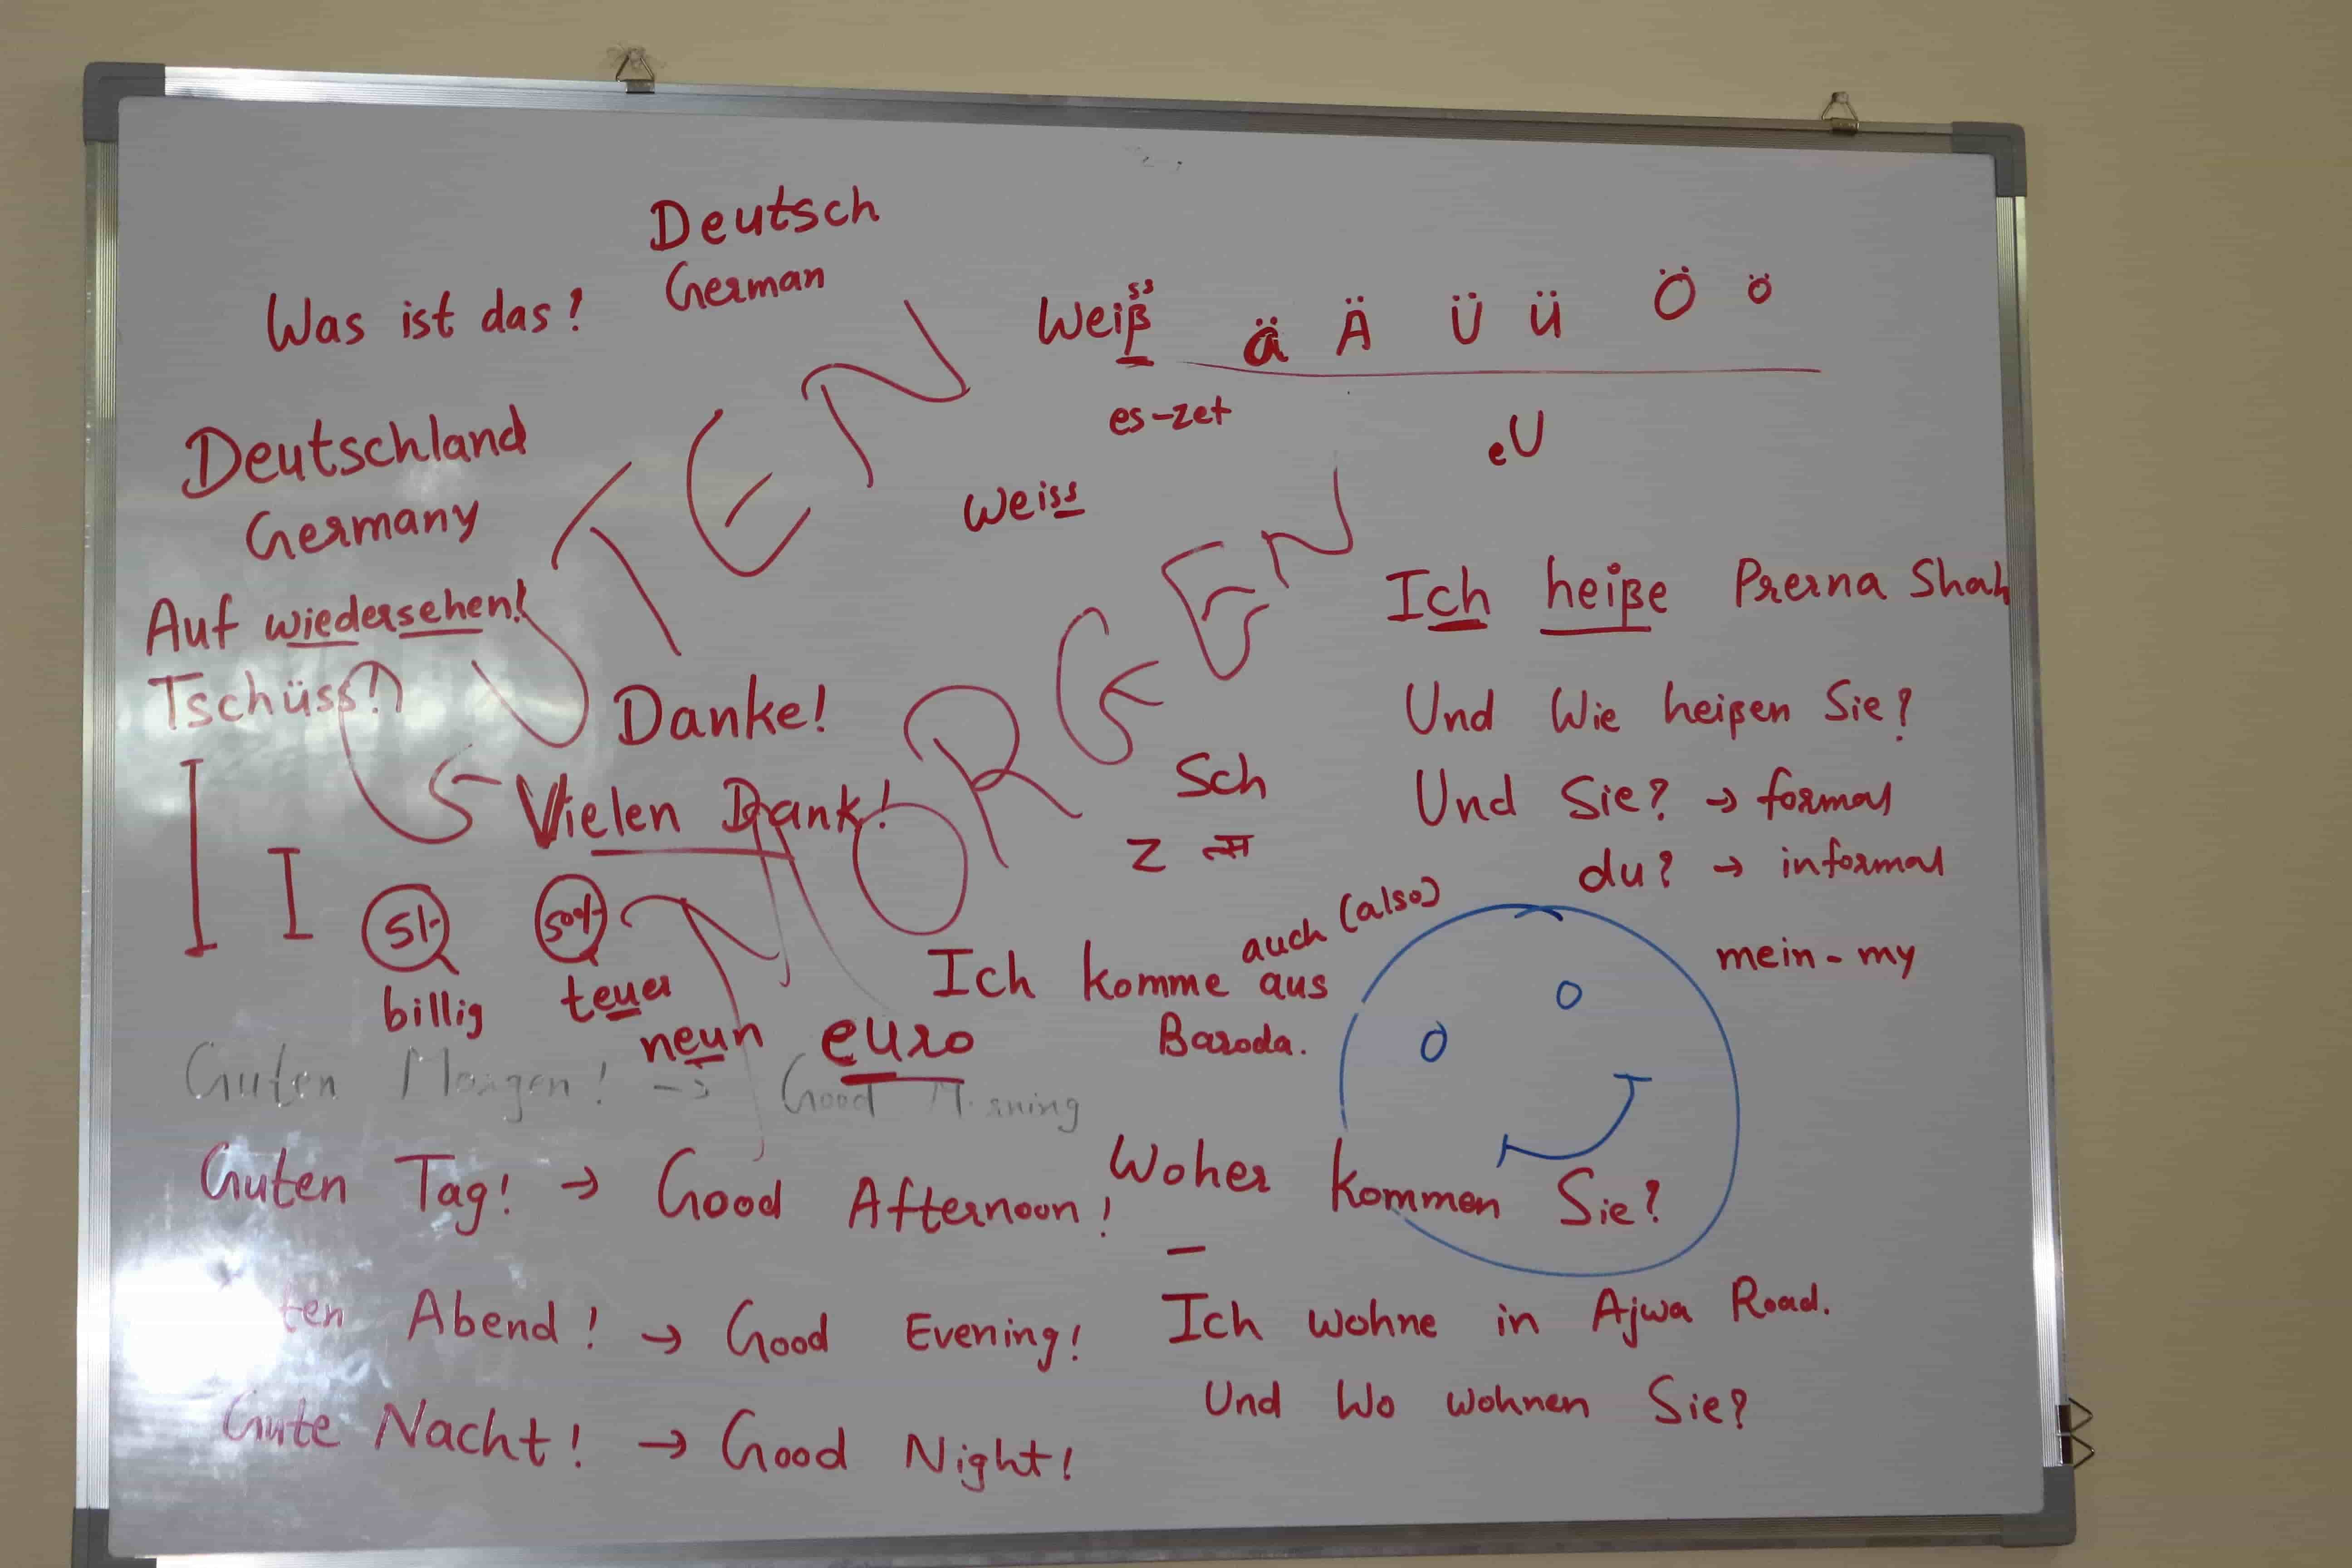 Deutsch
German
Was ist das?
Weiß ss ä Ä Ü ü Ö ö
es-zet
eU
Weiss
Deutschland
Germany
Auf wiedersehen!
Tschüss!
GUTEN
MORGEN
Danke!
Vielen Dank!
I I
5/- 50/-
billig teuer
neun euro
Sch
Z त्स
Ich heiße Prerna Shah
Und Wie heißen Sie?
Und Sie? → formal
du? → informal
mein - my
auch (also)
Ich komme aus
Baroda.
Guten Morgen! → Good Morning
Guten Tag! → Good Afternoon!
ten Abend! → Good Evening!
Gute Nacht! → Good Night!
Woher kommen Sie?
Ich wohne in Ajwa Road.
Und Wo wohnen Sie?